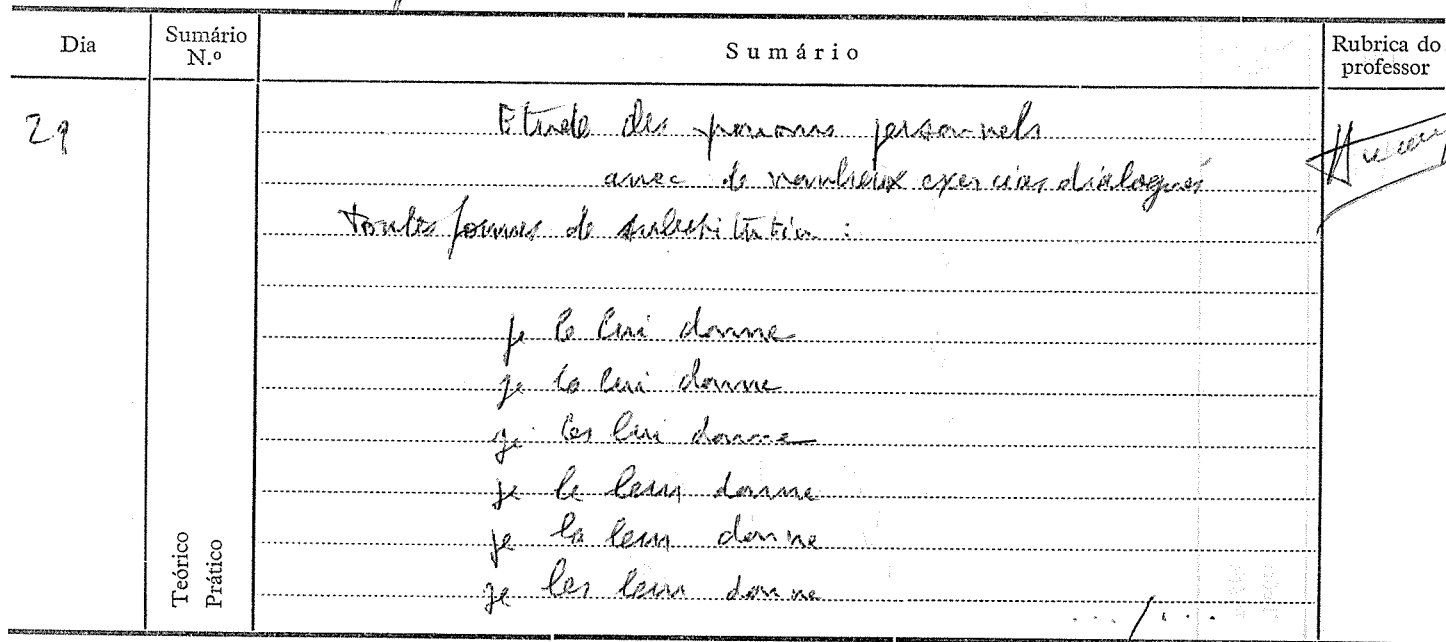 Dia
Sumário N.º
Sumário
Rubrica do professor
29
Etude des pronoms personnels
avec de nombreux exercices dialogués
toutes formes de substitution :
je le lui donne
je la lui donne
je les lui donne
je le leur donne
je la leur donne
je les leur donne
.../...
Teórico
Prático